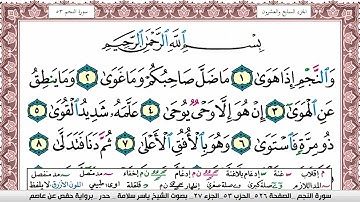 الجزء السابع والعشرون
سورة النجم ٥٣
بِسْمِ اللَّهِ الرَّحْمَٰنِ الرَّحِيمِ
وَالنَّجْمِ إِذَا هَوَىٰ ١ مَا ضَلَّ صَاحِبُكُمْ وَمَا غَوَىٰ ٢ وَمَا يَنطِقُ
عَنِ الْهَوَىٰ ٣ إِنْ هُوَ إِلَّا وَحْيٌ يُوحَىٰ ٤ عَلَّمَهُ شَدِيدُ الْقُوَىٰ ٥
ذُو مِرَّةٍ فَاسْتَوَىٰ ٦ وَهُوَ بِالْأُفُقِ الْأَعْلَىٰ ٧ ثُمَّ دَنَا فَتَدَلَّىٰ ٨
سورة النجم - الصفحة ٥٢٦ - الحزب ٥٣ - الجزء ٢٧ - بصوت الشيخ ياسر سلامة - حدر - برواية حفص عن عاصم